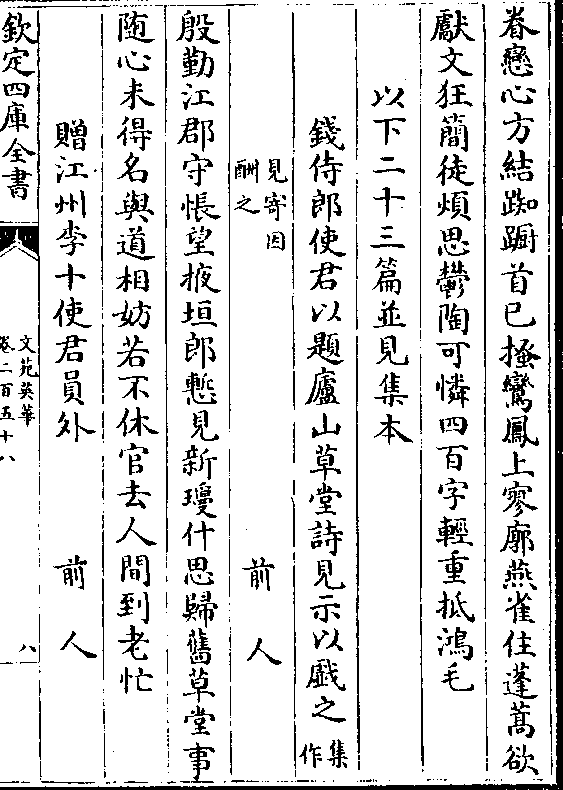 眷戀心方結踟蹰首已搔鸞鳳上寥廓燕雀住蓬蒿欲
獻文狂簡徒煩思鬱陶可憐四百字輕重抵鴻毛
以下二十三篇並見集本
錢侍郎使君以題廬山草堂詩見示以戯之集作
見寄因酬之 前人
殷勤江郡守悵望掖垣郎慙見新瓊什思歸舊草堂事
随心未得名與道相妨若不休官去人間到老忙
贈江州李十使君員外 前人
欽定四庫全書
文苑英華
卷二百五十八
八